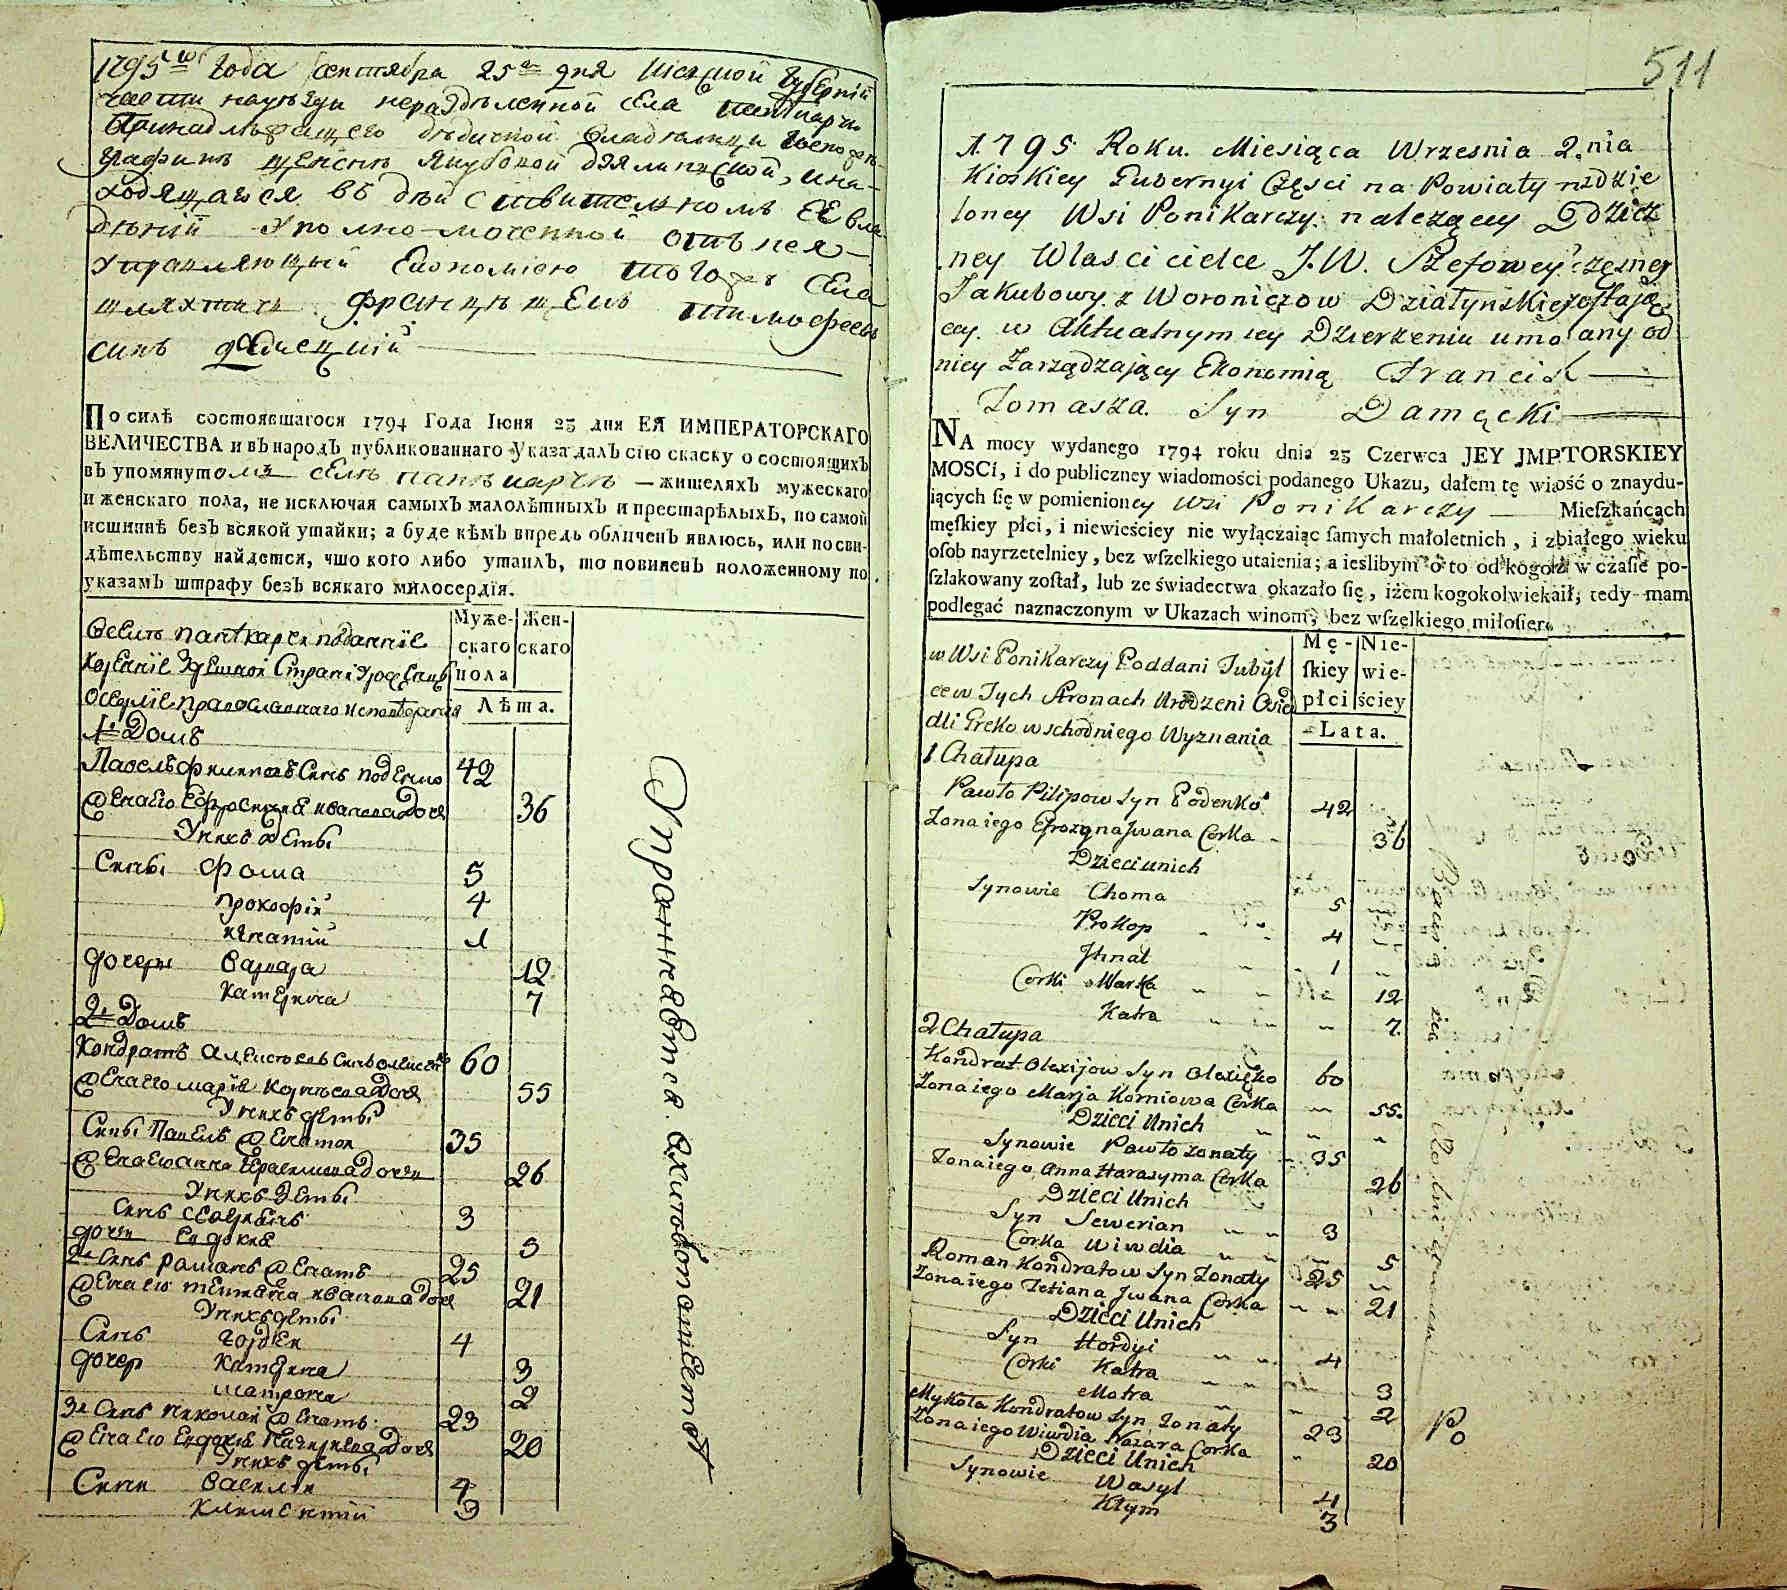 1795го Года Сентября 25го дня Киевской Губернїи
части на уезды неразделенной села
Принадлежащего дедичной владелицы
Якубовой Дзялинской, и на-
ходящагося въ действительномъ Ее вла-
денїи Уполно-моченной отъ нея
Управляющый Економїею тогожъ села
шляхтичъ Францишекъ Тимофеевъ
синъ
ПО силѣ состоявшагося 1794 Года Іюня 23 дня ЕЯ ИМПЕРАТОРСКАГО
ВЕЛИЧЕСТВА и въ народъ публикованнаго Указа далъ сїю скаску о состоящихъ
въ упомянутомъ селе — жителяхъ мужескаго
и женскаго пола, не исключая самыхъ малолѣтныхъ и престарѣлыхъ, по самой
истиннѣ безъ всякой утайки; а буде кѣмъ впредь обличенъ явлюсь, или по сви-
дѣтельству найдется, что кого либо утаилъ, то повиненъ положенному по
указамъ штрафу безъ всякаго милосердїя.
Муже-
скаго
пола
Жен-
скаго
Лѣта.
1й Домъ
Павелъ Филиповъ Синъ Поденко 42
Жена его Ефросинїя Иванова Дочь 36
У нихъ Дети
Сины Фома 5
Прокофїй 4
Игнатїй 1
дочери Варвара 12
Катерина 7
2й Домъ
Кондратъ Алексеевъ Синъ 60
Жена его Марїя Корнеева Дочь 55
У нихъ дети
Сины Павелъ Женатой 35
Жена его Анна Герасимова Дочь 26
У нихъ Дети
Синъ Северїянъ 3
дочь Евдокїя 5
2й Синъ Романъ Женатъ 25
Жена его Иванова Дочь 21
У нихъ дети
Синъ Гордей 4
дочери Катерина 3
Матрона 2
3й Синъ Николай Женатъ 23
Жена его Евдокїя Дочь 20
У нихъ дети
Сини Василїй 4
Климентїй 3
511
A. 1795 Roku. Miesiąca Wrzesnia 2. nia
Kioskiey Gubernyi Częsci na Powiaty nrdzie
loney Wsi Ponikarczy. nalezącey Dzicz
ney Wlascicielce J.W. Szefowey
Jakubowy z Woroniczow Działyńskiey zostają
cey. w Aktualnym iey Dzierzeniu umo any od
niey Zarządzający Ekonomią Francisk —
Tomasza. Syn Damęcki —
NA mocy wydanego 1794 roku dnia 23 Czerwca JEY JMPTORSKIEY
MOSCI, i do publiczney wiadomości podanego Ukazu, dałem tę wiość o znaydu-
iących się w pomienioney Wsi Ponikarczy — Mieszkańcach
męskiey płci, i niewieściey nie wyłączaiąc samych małoletnich, i zbiałego wieku
osob nayrzetelniey, bez wszelkiego utaienia; a ieślibym o to od kogoż w czasie po-
szlakowany został, lub ze świadectwa okazało się, iżem kogokolwiekaił, tedy mam
podlegać naznaczonym w Ukazach winom, bez wszelkiego miłosier
w Wsi Ponikarczy Poddani Tubyl
cew Tych Stronach Urodzeni Osie
dli Greko wschodniego Wyznania
Mę-
skiey
płci
Nie-
wie-
ściey
Lata.
1 Chałupa
Pawło Pilipow Syn Podenko 42
Zona iego Efrozyna Jwana Corka 36
Dzieci u nich
Synowie Choma 5
Prokop 4
Jhnat 1
Corki Warka 12
Katra 7
2 Chałupa
Kondrat Olexijow Syn Olexięko 60
Zona iego Marja Korniowa Corka 55
Dzieci Unich
Synowie Pawło zonaty 35
Zona iego Anna Harasyma Corka 26
Dzieci Unich
Syn Sewerian 3
Corka Wiwdia 5
Roman Kondratow Syn Zonaty 25
Zona iego Tetiana Jwana Corka 21
Dzieci Unich
Syn Hordyi 4
Corki Katra 3
Motra 2
Mykoła Kondratow Syn Zonaty 23
Zona iego Wiwdia Nazara Corka 20
Dzieci Unich
Synowie Wasyl 4
Kłym 3